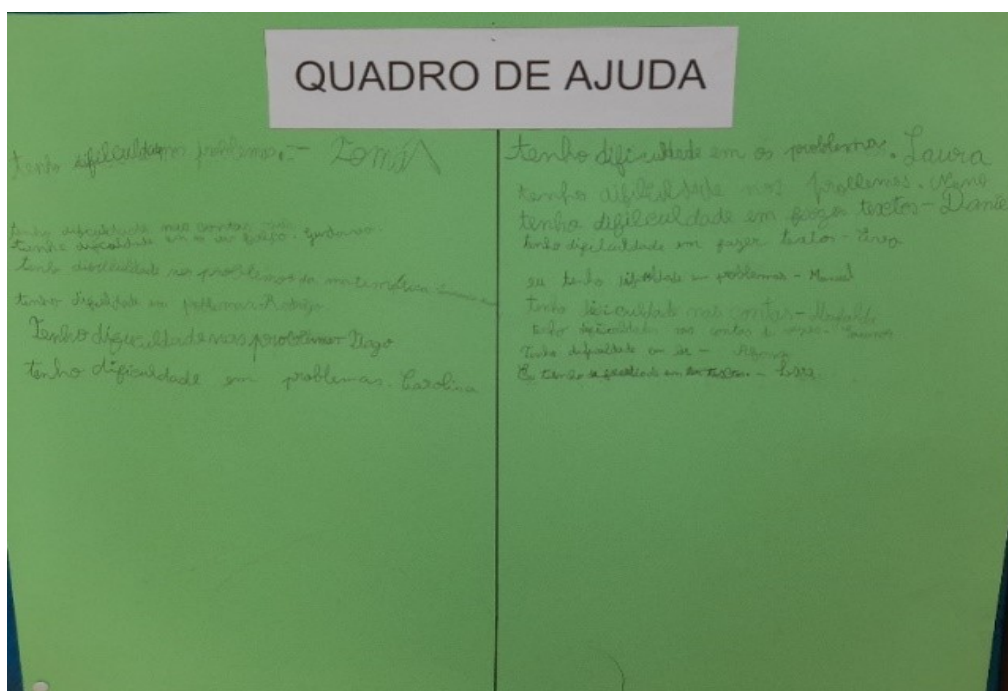 QUADRO DE AJUDA
tenho dificuldade problemas - Tomás
tenho dificuldade nas contas
tenho dificuldade em o
tenho dificuldade nos problemas da matemática
tenho dificuldade em problemas - Rodrigo
Tenho dificuldade nos problemas - Tiago
tenho dificuldade em problemas. Carolina
tenho dificuldade em os problemas. Laura
tenho dificuldade nos problemas. Nuno
tenho difilculdade em fazer textos - Daniel
tenho dificuldade em fazer textos -
eu tenho dificuldade em problemas - Manuel
tenho dificuldade nas contas - Mafalda
tenho dificuldade nas contas de
Tenho dificuldade em ler - Afonso
Eu tenho dificuldade em textos - Lara